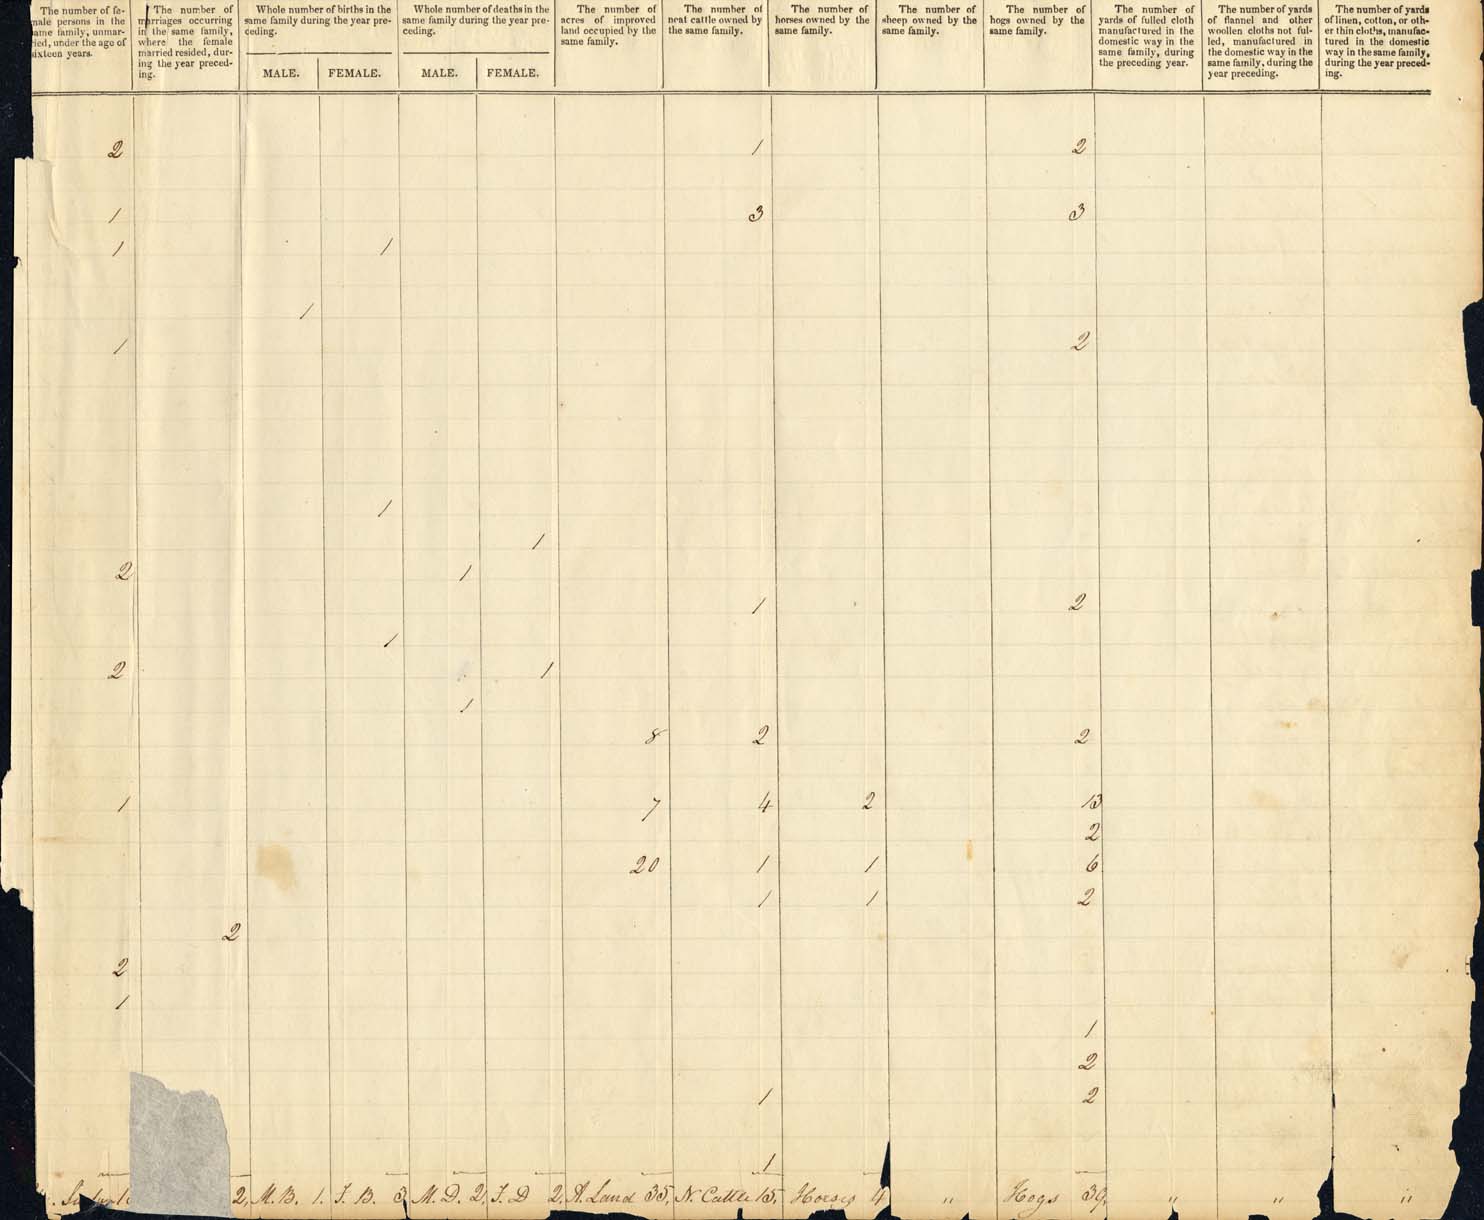 The number of fe-
male persons in the
same family, unmar-
ried, under the age of
sixteen years.
The number of
marriages occurring
in the same family,
where the female
married resided, dur-
ing the year preced-
ing.
Whole number of births in the
same family during the year pre-
ceding.
MALE. FEMALE.
Whole number of deaths in the
same family during the year pre-
ceding.
MALE. FEMALE.
The number of
acres of improved
land occupied by the
same family.
The number of
neat cattle owned by
the same family.
The number of
horses owned by the
same family.
The number of
sheep owned by the
same family.
The number of
hogs owned by the
same family.
The number of
yards of fulled cloth
manufactured in the
domestic way in the
same family, during
the preceding year.
The number of yards
of flannel and other
woollen cloths not ful-
led, manufactured in
the domestic way in the
same family, during the
year preceding.
The number of yards
of linen, cotton, or oth-
er thin cloths, manufac-
tured in the domestic
way in the same family,
during the year preced-
ing.
2 1 2
1 3 3
1 1
1
1 2
1
1
2 1
1 2
1
2 1
1
8 2 2
1 7 4 2 13
2
20 1 1 6
1 1 2
2
2
1
1
2
1 2
1
2, M. B. 1. F. B. 3, M. D. 2, F. D 2, A. Land 35, N. Cattle 15, Horses 4 " Hogs 39, " " "